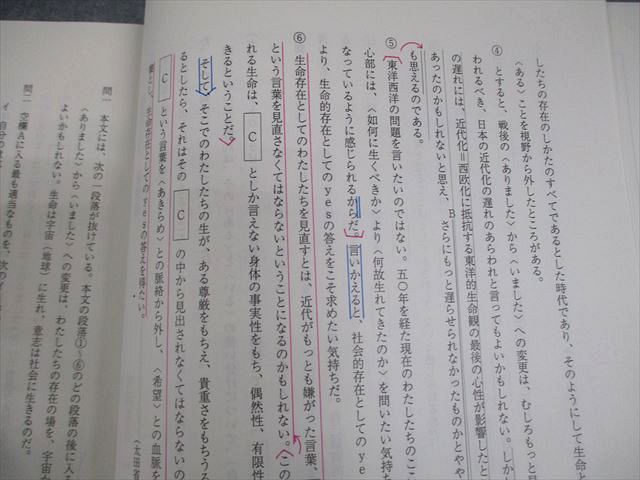 したちの存在のしかたのすべてであるとした時代であり、そのようにして生命と
〈ある〉ことを視野から外したところがある。
④ とすると、戦後の〈ありました〉から〈いました〉への変更は、むしろもっと見
われるべき、日本の近代化の遅れのあらわれと言ってもよいかもしれない。しかし
の遅れには、近代化＝西欧化に抵抗する東洋的生命観の最後の心性が影響したと
あったのかもしれないと思え、B さらにもっと遅らせられなかったものかとやや
も思えるのである。
⑤ 東洋西洋の問題を言いたいのではない。五〇年を経た現在のわたしたちのここ
心部には、〈如何に生くべきか〉より〈何故生れてきたのか〉を問いたい気持ち
なっているように感じられるからだ。言いかえると、社会的存在としてのｙｅ
より、生命的存在としてのｙｅｓの答えをこそ求めたい気持ちだ。
⑥ 生命存在としてのわたしたちを見直すとは、近代がもっとも嫌がった言葉、
という言葉を見直さなくてはならないということになるのかもしれない。この
れる生命は、C としか言えない身体の事実性をもち、偶然性、有限性
きるということだ。
そして、そこでのわたしたちの生が、ある尊厳をもちえ、貴重さをもちうる
るとしたら、それはその C の中から見出されなくてはならないの
C という言葉を〈あきらめ〉との脈絡から外し、〈希望〉との血脈を
生命存在としてのｙｅｓの答えを得たい。
（太田省
問一 本文には、次の一段落が抜けている。本文の段落①〜⑥のどの段落の後に入る
〈ありました〉から〈いました〉への変更は、わたしたちの存在の場を、宇宙か
よいかもしれない。生命は宇宙（地球）に生れ、意志は社会に生きるのだ。
問二 空欄Aに入る最も適当なものを、次のイ
イ 自分の